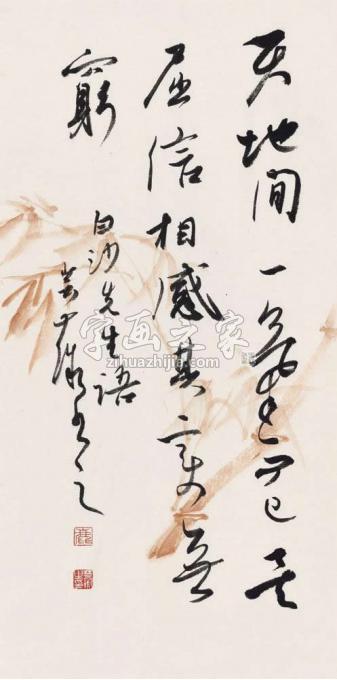 天地間一氣而已
屈信相感其變無
窮
白沙先生語
書之
字画之家
zihuazhijia.com